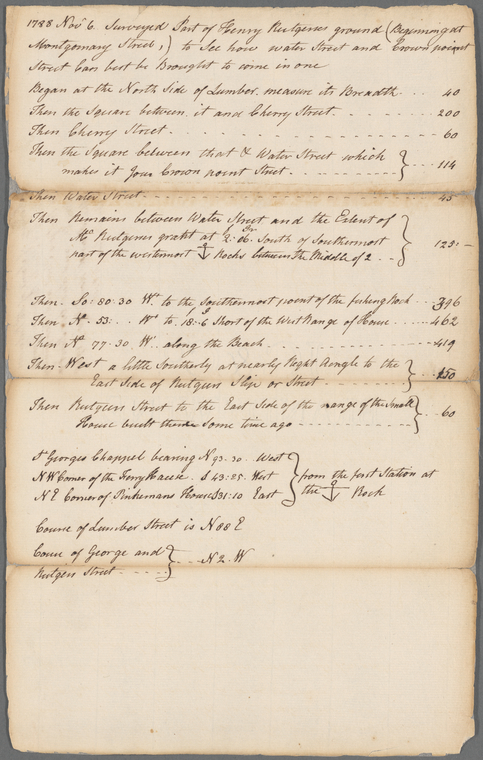 1788 Novr 6. Surveyed Part of Henry Rutgers ground (Beginning at
Montgomary Street,) to See how water Street and Crown point
Street Can best be Brought to come in one
Began at the North Side of Lumber, measure its Breadth - - - 40
Then the Square between it and Cherry Street - - - - 200
Then Cherry Street - - - - - - - - 60
Then the Square between that & Water Street which
makes it your Crown point Street - - - - } - - 114
Then Water Street - - - - - - - - 45
Then Remains between Water Street and the Extent of
Mr Rutgers grant at 2f: 6In South of Southernmost
part of the westernmost ⚓ Rocks between the Middle of 2 - - } 125
Then So: 80:30 Wt to the Southernmost point of the fishing Rock - - 396
Then No 53: Wt to 18f:6 Short of the West Range of House - - - 462
Then No 77.30 W along the Beach - - - - - 419
Then West a little Southerly at nearly Right Aengle to the
East Side of Rutgers Slip or Street - - - - } - - 150
Then Rutgers Street to the East Side of the range of the Small
House built there Some time ago - - - - } - - 60
St Georges Chappel bearing N 93.30 West
N W Corner of the Ferry House . S 43:25. West
N E Corner of House S 31:10 East } from the first Station at
the ⚓ Rock
Course of Lumber Street is N 88 E
Course of George and
Rutgers Street - - - } - - - N 2 W